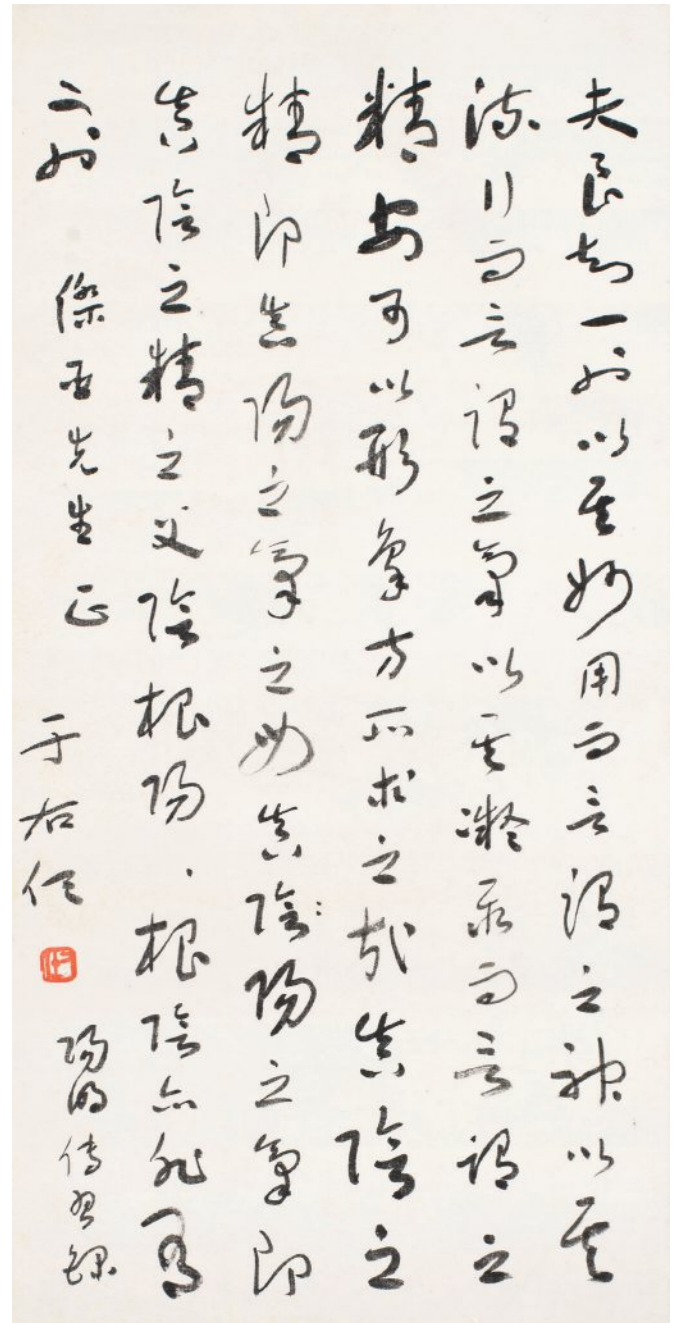 夫良知一也以其妙用而言謂之神以其
流行而言謂之氣以其凝聚而言謂之
精安可以形象方所求之哉真陰之
精即真陽之氣之母真陰陽之氣即
真陰之精之父陰根陽、根陰亦非有
二也
傑先生正
于右任
陽明傳習錄